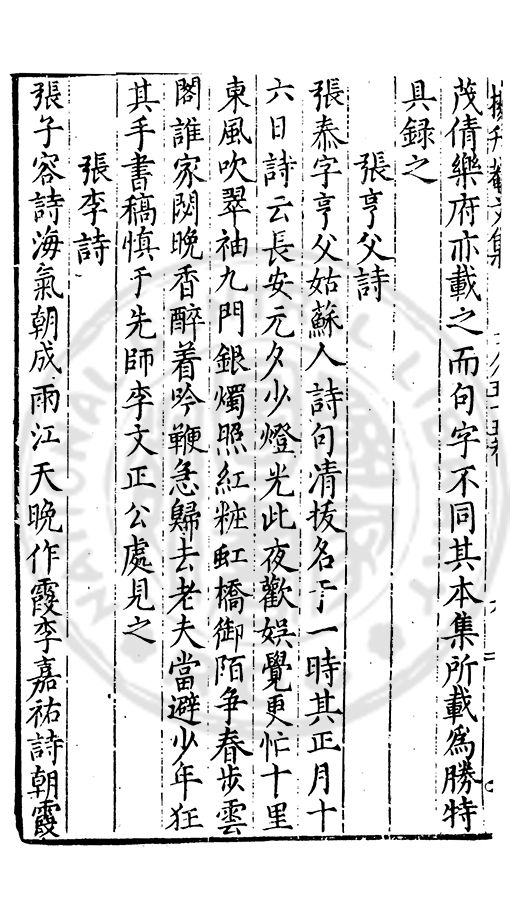 茂倩樂府亦載之而句字不同其本集所載爲勝特
具録之
張亨父詩
張泰字亨父姑蘇人詩句清拔名于一時其正月十
六日詩云長安元夕少燈光此夜歡娛覺更忙十里
東風吹翠袖九門銀燭照紅粧虹橋御陌争春步雲
閣誰家閟晚香醉着吟鞭急歸去老夫當避少年狂
其手書稿慎于先師李文正公處見之
張李詩
張子容詩海氣朝成雨江天晚作霞李嘉祐詩朝霞